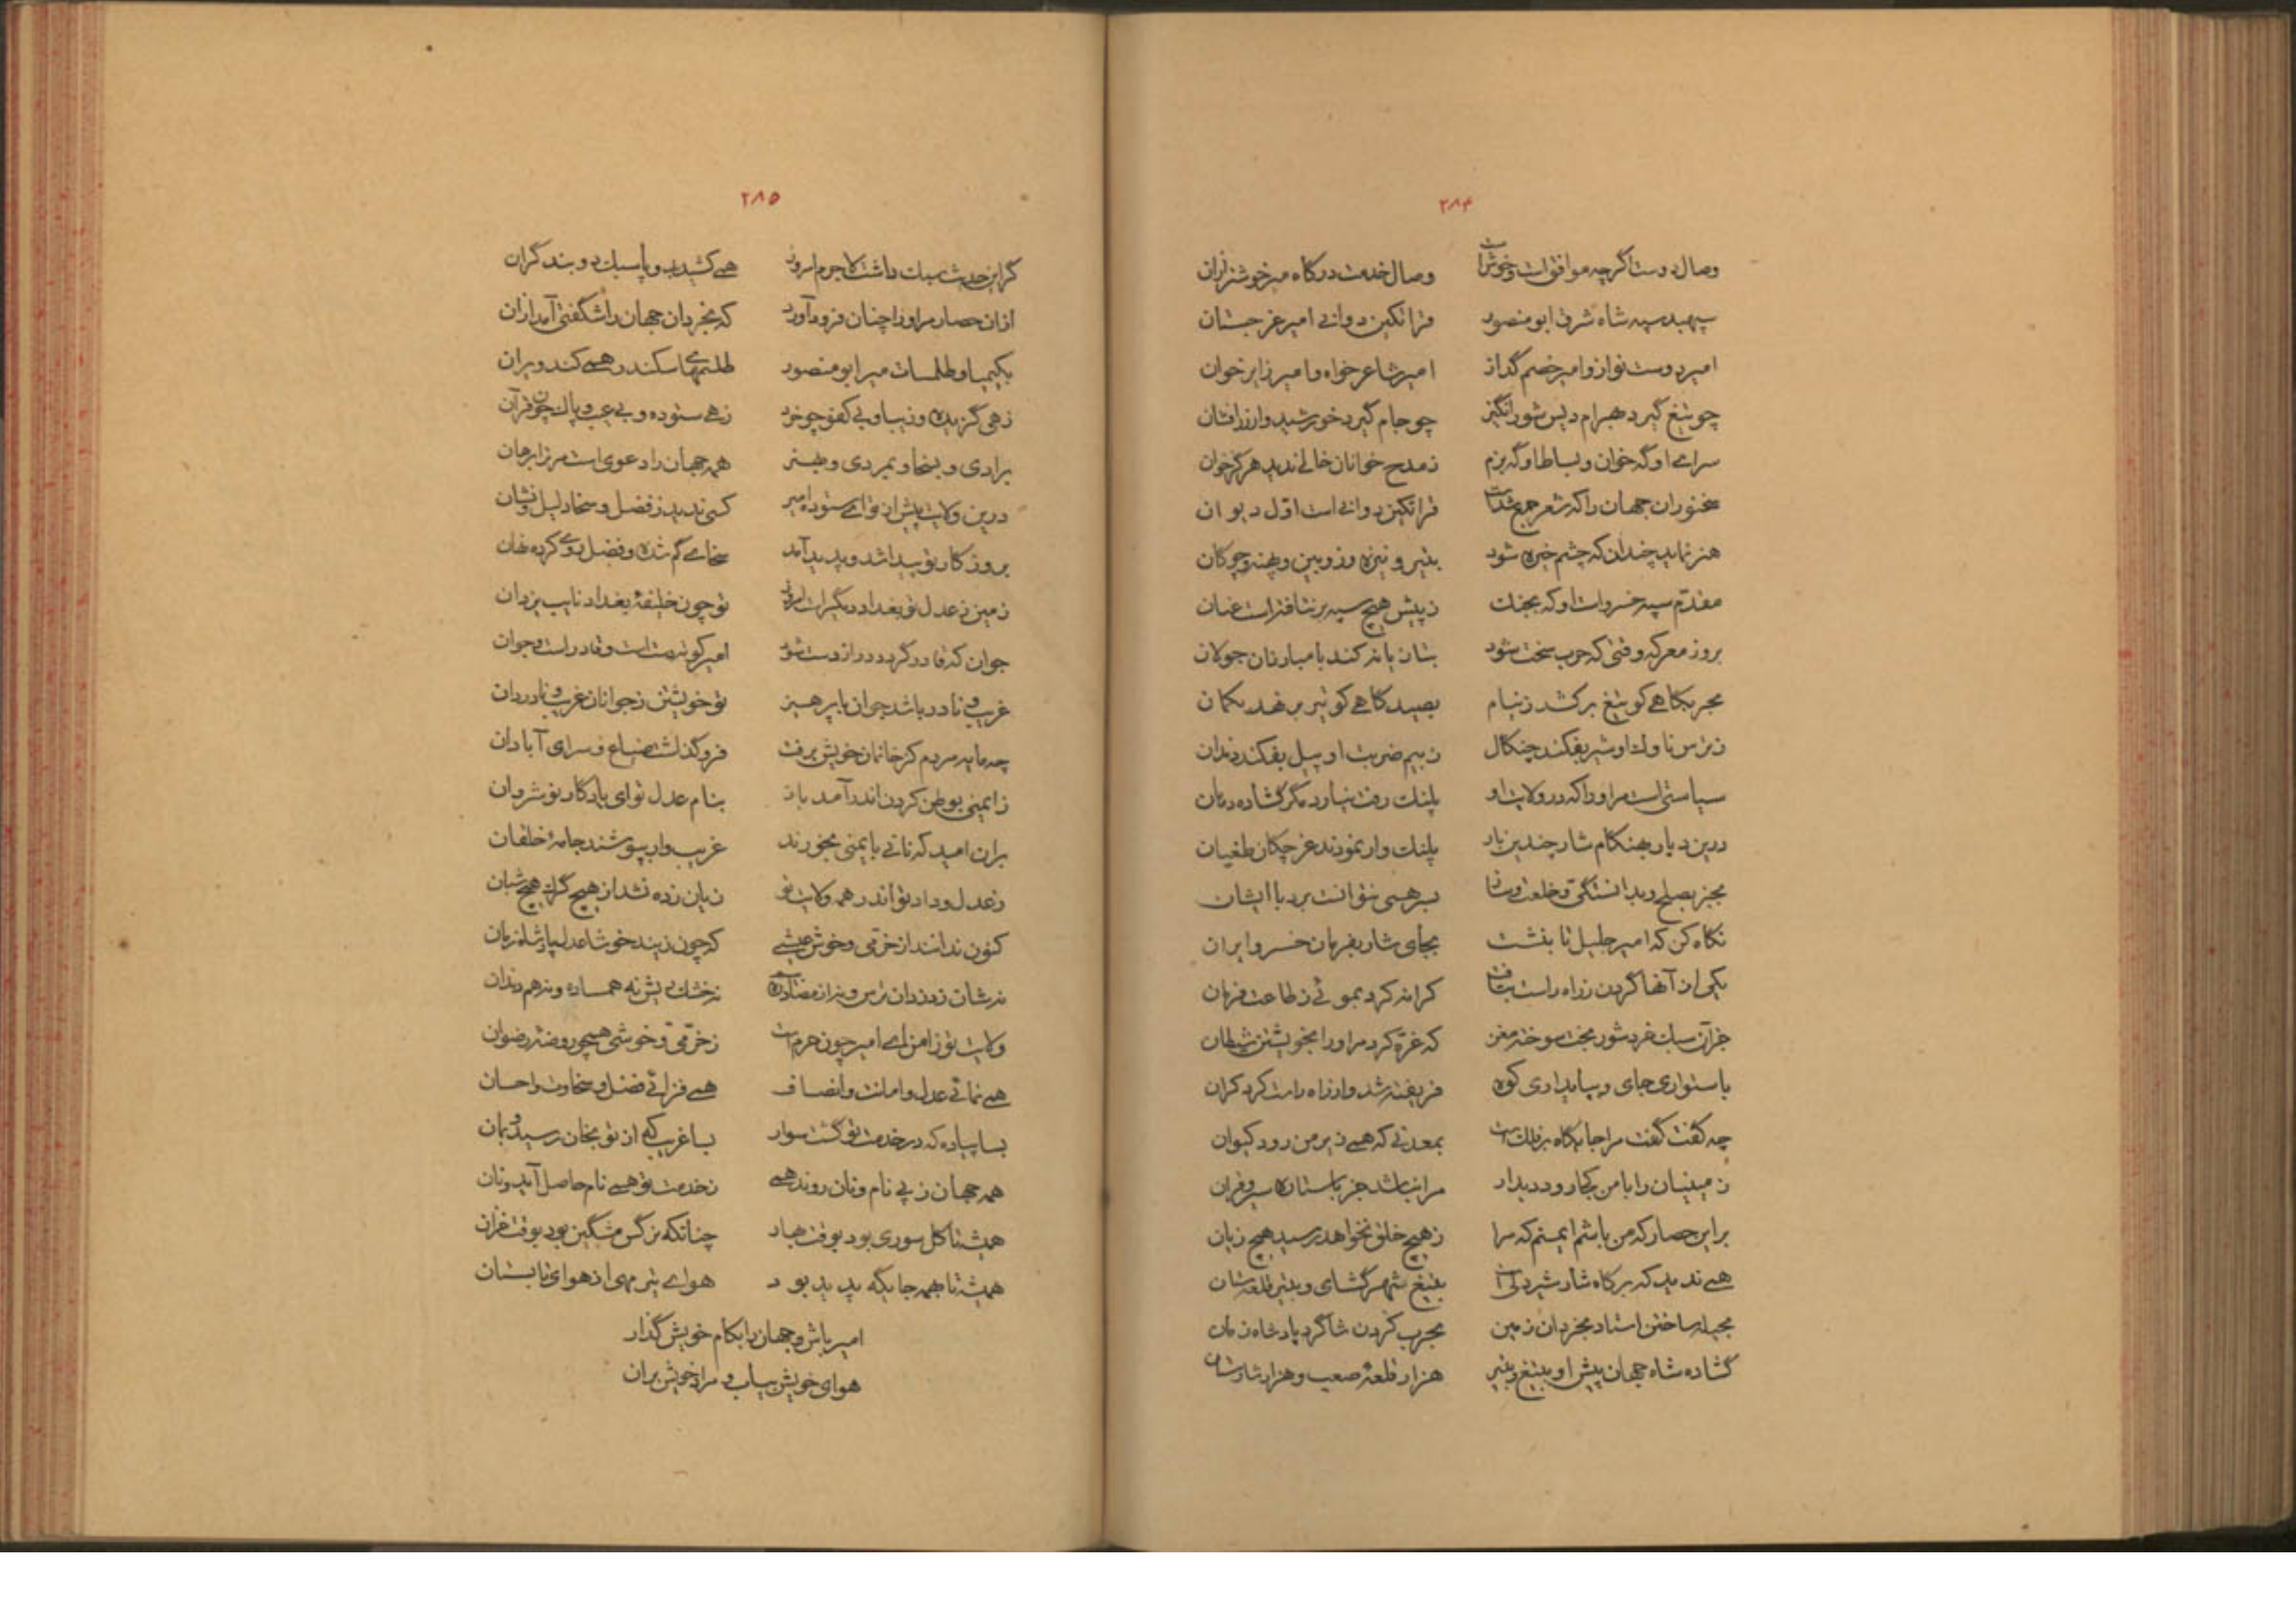 ۲۸۴
وصال دوست اگرچه موافق است و خوش است وصال خدمت درگاه میر خوشتر از آن
سپهبد سپه شاه شرق ابو منصور قراتکین دوانی امیر غرجستان
امیر دوست نواز و امیر خصم گداز امیر شاعر خواه و امیر زایر خوان
چو تیغ گیرد بهرام دیس شورانگیز چو جام گیرد خورشید وار زرافشان
سرای او گه خوان و بساط او گه بزم ز مدح خوانان خالی ندید هرگز خوان
سخنوران جهان را که شعر جمع شدست قراتکین دوانی است اوّل دیوان
هنر نماید چندان که چشم خیره شود بتیر و نیزه و زوبین و پهنه و چوگان
مقدّم سپه خسروست او که بجنگ ز پیش هیچ سپه برنتافته است عنان
بروز معرکه وقتی که حرب سخت شود بسان باد کند با مبارزان جولان
بحربگاهی کو تیغ برکشد ز نیام بصیدگاهی کو تیر برنهد بکمان
ز ترس ناوک او شیر بفکند چنگال ز بیم ضربت او پیل بفکند دندان
سیاستی است مر او را که در ولایت او پلنگ رفت نیارد مگر گشاده دهان
درین دیار بهنگام شار چندین بار پلنگ وار نمودند غرچکان طغیان
بجز بصلح و بدانستگی و خلعت و ساز بسر همی نتوانست برد با ایشان
نگاه کن که امیر جلیل تا بنشست بجای شار بفرمان خسرو ایران
یکی از آنها گردن ز راه راست نتافت کرانه کرد بموئی ز طاعت فرمان
جز آن سبک خرد شوربخت سوخته مغز که غرّه کرد مر او را بخویشتن شیطان
باستواری جای و بپایداری کوه فریفته شد و از راه راست کرد کران
چه گفت گفت مرا جایگاه بر فلک است بمعدنی که همی زیر من رود کیوان
زمینیان را با من کجا رود دیدار مرا نباشد جز باستارگان سیر و قران
بر این حصار که من باشم ایمنم که مرا ز هیچ خلق نخواهد رسید هیچ زیان
همی ندید که بر گاه شار شیر دلی است بتیغ شهرگشای و بتیر قلعه ستان
بحیله ساختن استاد بخردان زمین بحرب کردن شاگرد پادشاه زمان
گشاده شاه جهان پیش او بتیغ و بتیر هزار قلعهٔ صعب و هزار شارستان
۲۸۵
گر این حدیث سبک داشت لاجرم امروز همی کشید بدو پا سبک دو بند گران
ازان حصار مر او را چنان فرود آورد که بخردان جهان را شگفتی آمد ازان
بکیمیا و طلسمات میر ابو منصور طلسمهای سکندر همی کند ویران
زهی گزیده و زیبا و بی کفو چو خرد زهی ستوده و بی عیب و پاک چون قرآن
برادی و بسخا و بمردی و بهنر همه جهان را دعوی است مر ترا برهان
درین ولایت پیش از تو ای ستوده امیر کسی ندید ز فضل و سخا دلیل و نشان
بروزگار تو پیدا شد و پدید آمد سخای گم شده و فضل روی کرده نهان
زمین ز عدل تو بغداد دیگر است امروز تو چون خلیفهٔ بغداد نایب یزدان
جوان که قادر گردد دراز دست شود امیر کوته دست است و قادر است و جوان
غریب و نادر باشد جوان با پرهیز تو خویشتن ز جوانان غریب و نادر دان
چه مایه مردم کز خانمان خویش برفت فرو گذاشت ضیاع و سرای آبادان
ز ایمنی بوطن کردن اندر آمد باز بنام عدل تو ای یادگار نوشروان
بران امید که نانی بایمنی بخورند غریب وار بپوشند جامهٔ خلقان
ز عدل و داد تو اندر همه ولایت تو زیان زده نشد از هیچ گرگ هیچ شبان
کنون ندانند از خرّمی و خوش عیشی که چون زیند خوشا عدل پادشاه زمان
نه شان ز دزدان ترس و نه از مصادره نه خشک ریش ز همسایه و نه هم دندان
ولایت تو ز امن ای امیر چون حرم است ز خرّمی و خوشی همچو روضهٔ رضوان
همی نمائی عدل و امانت و انصاف همی فزائی فضل و سخاوت و احسان
بسا پیاده که در خدمت تو گشت سوار بسا غریب که از تو بخان رسید و بمان
همه جهان ز پی نام و نان روند همی ز خدمت تو همی نام حاصل آید و نان
همیشه تا گل سوری بود بوقت بهار چنانکه نرگس مشکین بود بوقت خزان
همیشه تا بهمه جایگه پدید بود هوای تیر مهی از هوای تابستان
امیر باش و جهان را بکام خویش گذار
هوای خویش بیاب و مراد خویش بران